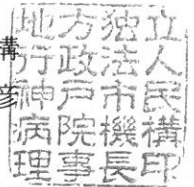 彦
地方独立
行政法人
神戸市民
病院機構
理事長印